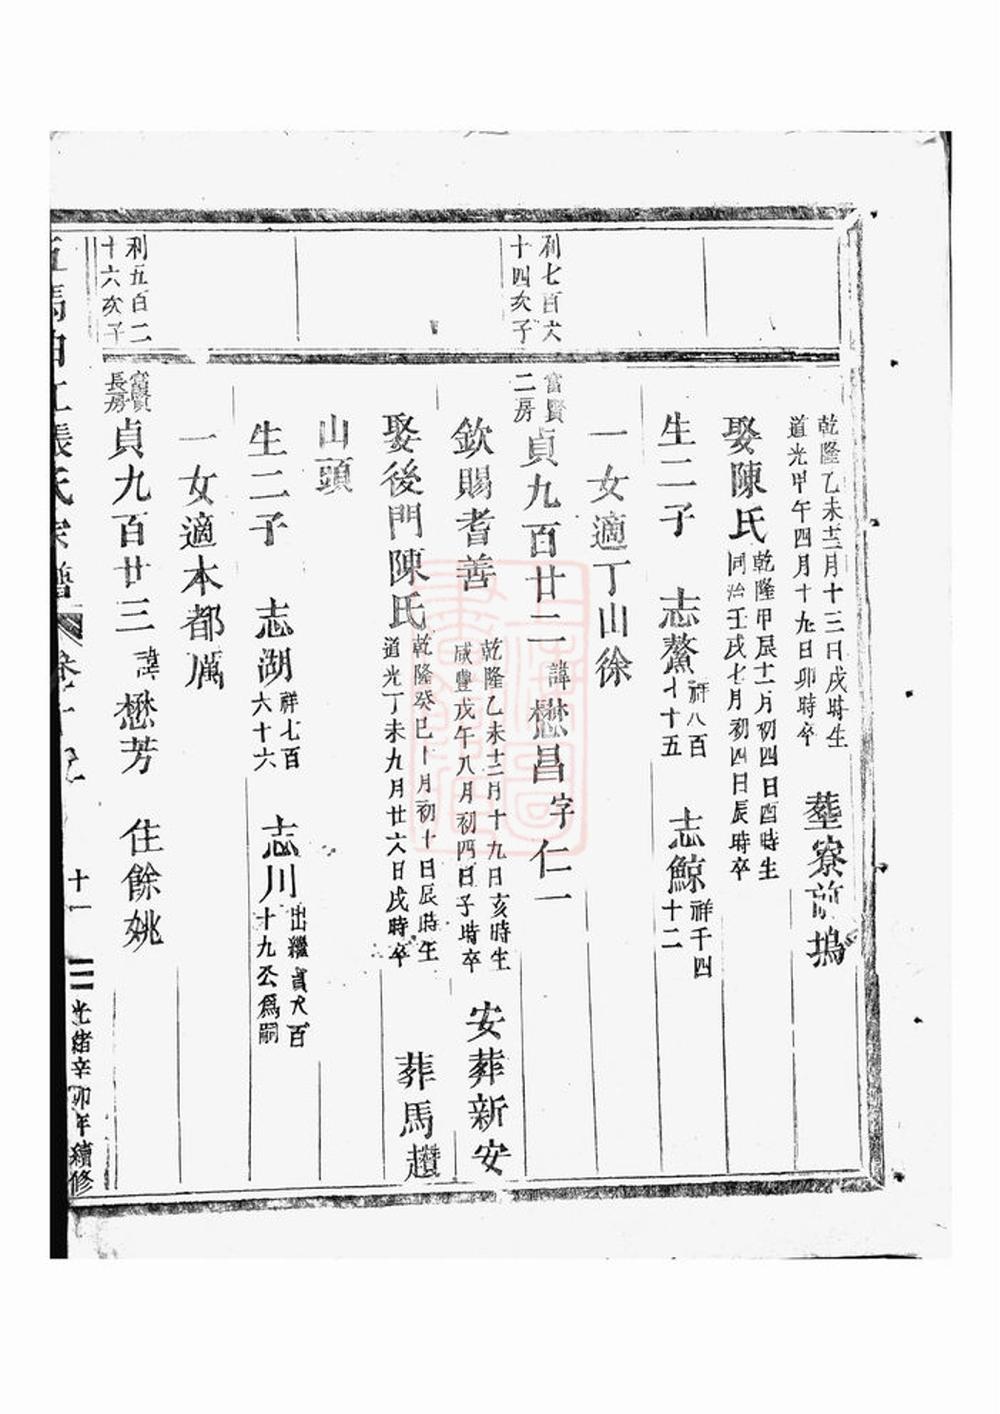 乾隆乙未十二月十三日戌時生
道光甲午四月十九日卯時卒
塟寮前塢
娶陳氏
乾隆甲辰十一月初四日酉時生
同治壬戌七月初四日辰時卒
生二子 志鰲
祥八百
十五
志鯨
祥千四
十二
一女適丁山徐
利七百六
十四次子
富賢
二房
貞九百廿二 諱懋昌 字仁一
欽賜耆善
乾隆乙未十二月十九日亥時生
咸豐戊午八月初四日子時卒
安葬新安
娶後門陳氏
乾隆癸巳十月初十日辰時生
道光丁未九月廿六日戌時卒
葬馬趲
山頭
生二子 志湖
祥七百
六十六
志川
出繼貞九百
十九公爲嗣
一女適本都厲
利五百二
十六次子
富賢
長房
貞九百廿三 諱懋芳 住餘姚
張氏宗譜
十一
光緒辛卯年續修